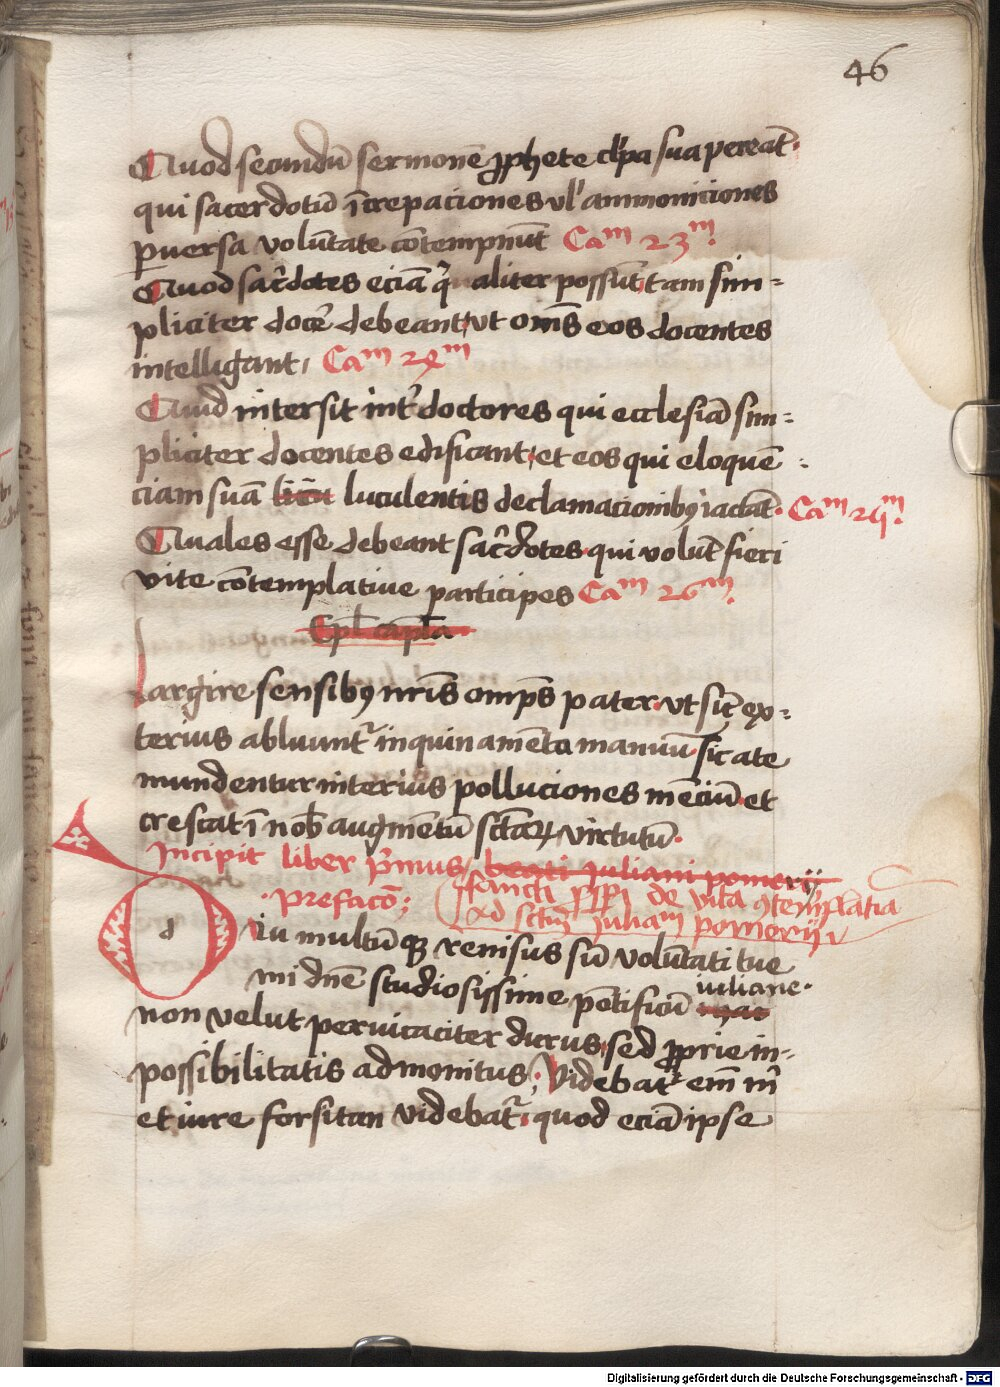 46
Quod secundũ sermonẽ ꝓphete cl'pa sua pereãt.
qui sacerdotũ ĩcrepaciones vl' ammoniciones
ꝑuersa volũtate cõtempnũt Caᵐ 23ᵐ.
Quod sac̃dotes eciã q̃ aliter possũt, tam sim-
pliciter docẽ debeant, ut om̃s eos docentes
intelligant, Caᵐ 2ꝝᵐ
Quid intersit int' doctores qui ecclesiã sim-
pliciter docentes edificant, et eos qui eloquẽ-
ciam suã luculentis declamacionibꝯ iactãt. Caᵐ 24ᵐ.
Quales esse debeant sac̃dotes qui volũt fieri
vite cõtemplatiue participes Caᵐ 26ᵐ.
Expl capl̃a
Largire sensibꝯ nr̃is omp̃s pater. vt sic̃ ex-
terius abluunt' inquinamẽta manuũ sic a te
mundentur interius polluciones mẽciũ et
crescat ĩ nob̃ augmẽtũ sctãꝝ virtutũ.
Incipit liber p'mus, beati Juliani pomerij
sancti ꝓsꝑi de vita ꝯtemplatia
.prefacõ;
ad sctũ Julianũ pomeriũ
d
Diu multũqꝫ renisus sũ volũtati tue
mi dñe studiosissime põtificũ
iuliane.
non velut peruicaciter durus, sed ꝓprie in-
possibilitatis admonitus, Videbat' em̃ m̃
et iure forsitan videbat', quod eciã ipse
Digitalisierung gefördert durch die Deutsche Forschungsgemeinschaft - DFG